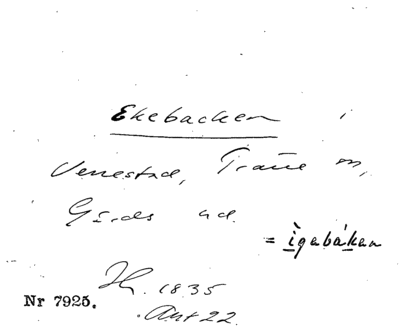 Ekebacken i
Venestad, Träne sn,
Gärds hd.
= ìgebáken
Hr. 1835
Ant 22
Nr 7925.